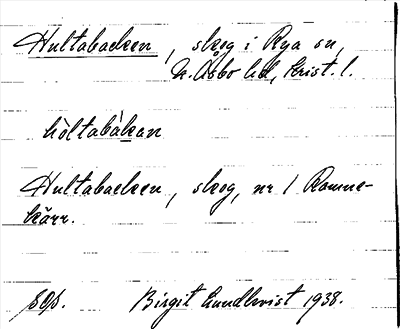 Hultabacken, skog i Rya sn,
N. Åsbo hd, Krist. l.
hòltabàkan
Hultabacken, skog, nr 1 Ramne-
kärr.
sep.
Birgit Lundkvist 1938.